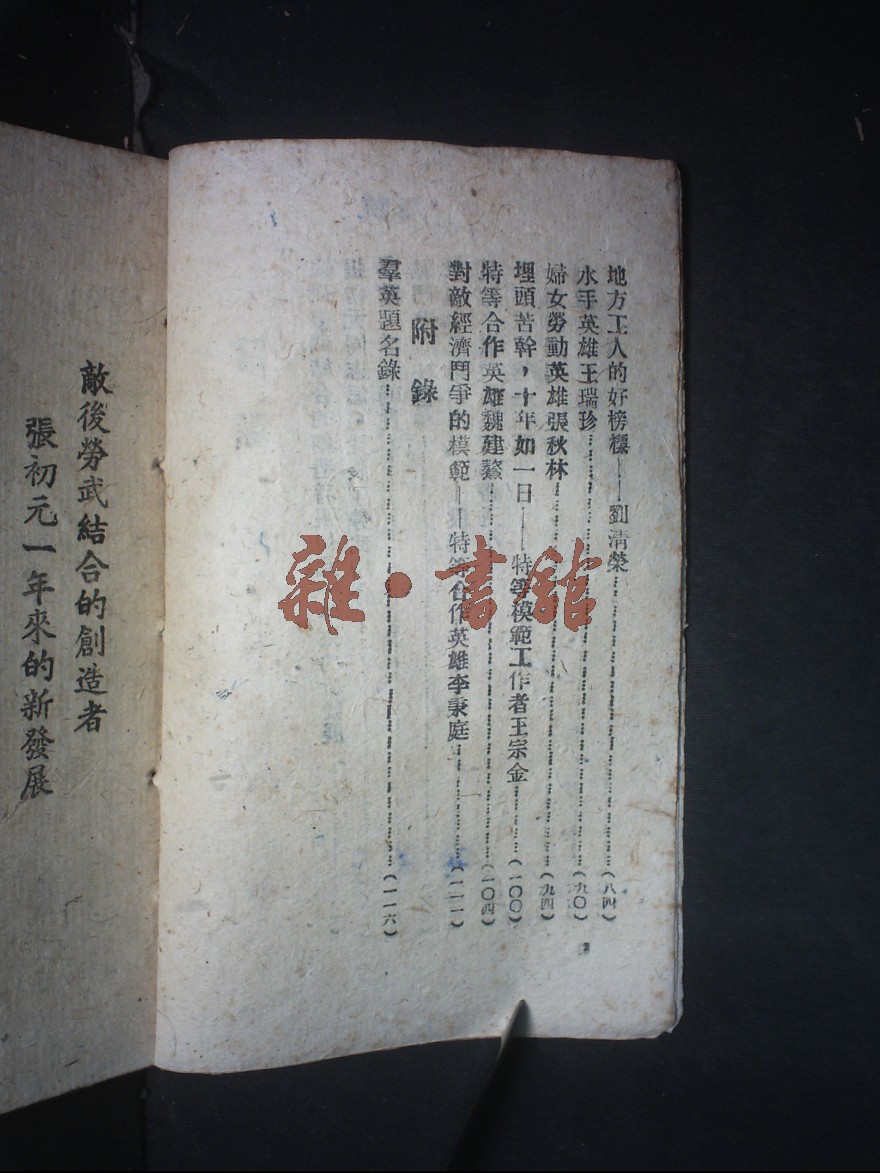 地方工人的好榜樣——劉清榮……(八四)
水手英雄王瑞珍……(九〇)
婦女勞動英雄張秋林……(九四)
埋頭苦幹，十年如一日——特等模範工作者王宗金……(一〇〇)
特等合作英雄魏建鰲……(一〇四)
對敵經濟鬥爭的模範——特等合作英雄李秉庭……(一一一)
附錄
羣英題名錄……(一一六)
敵後勞武結合的創造者
張初元一年來的新發展
雜·書館